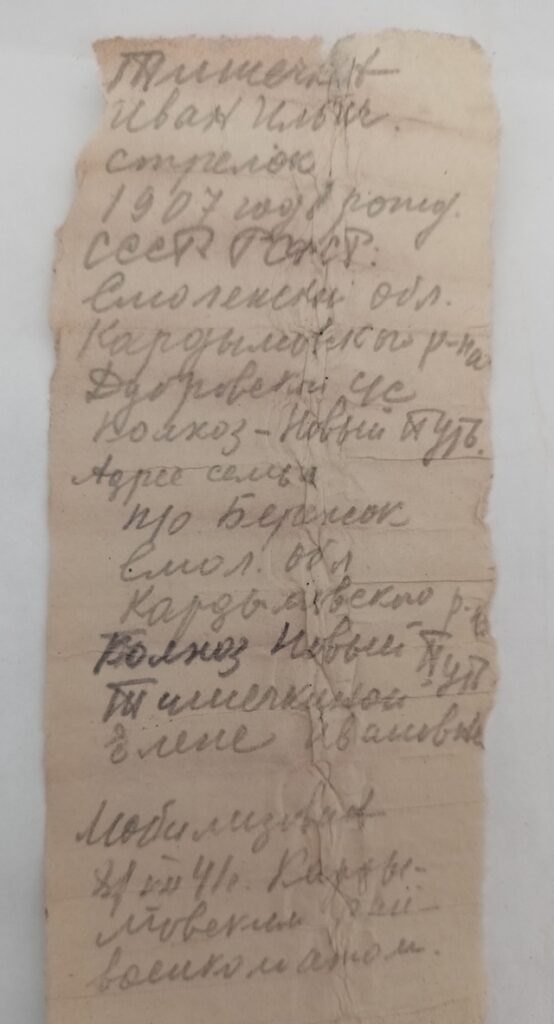 Тимечкин
Иван Ильич.
стрелок
1907 года рожд.
СССР РСФСР.
Смоленской обл.
Кардымовского р-на
Дубровской с/с
Колхоз-Новый Путь.
Адрес семьи
п/о Бережок
Смол. обл
Кардымовского р-н
Колхоз Новый Путь
Тимечкиной
Елене Ивановне
Мобилизован
41г. Карды-
мовским рай-
военкоматом.